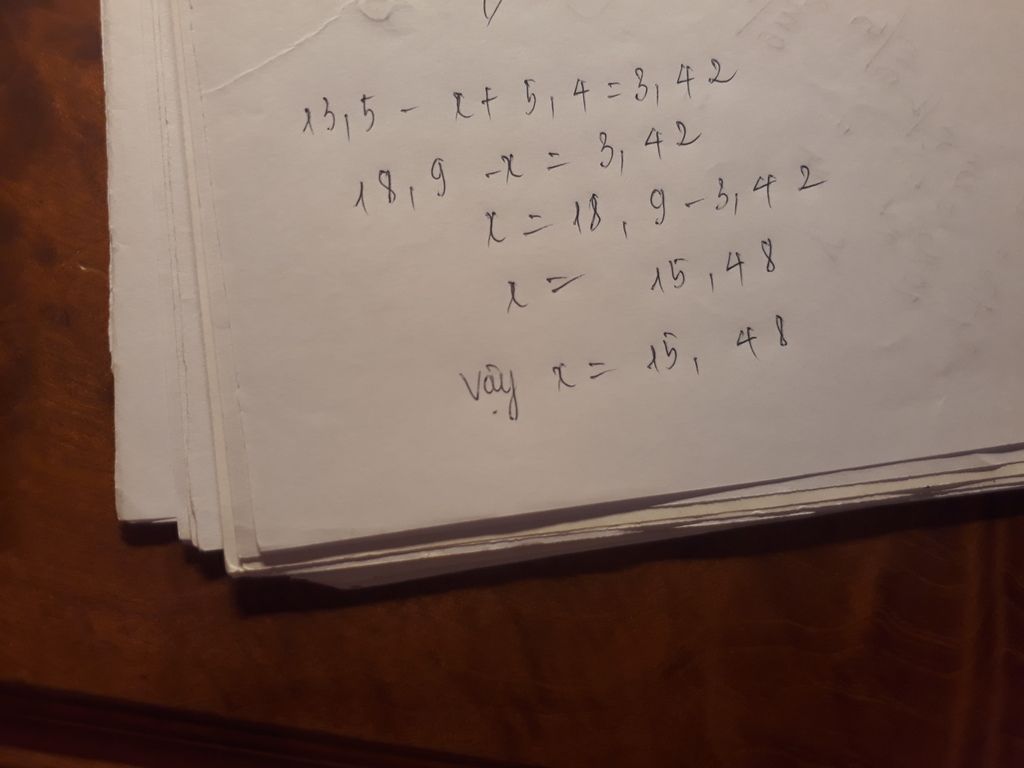 13,5 - x + 5,4 = 3,42
18,9 - x = 3,42
x = 18,9 - 3,42
x = 15,48
Vậy x = 15,48